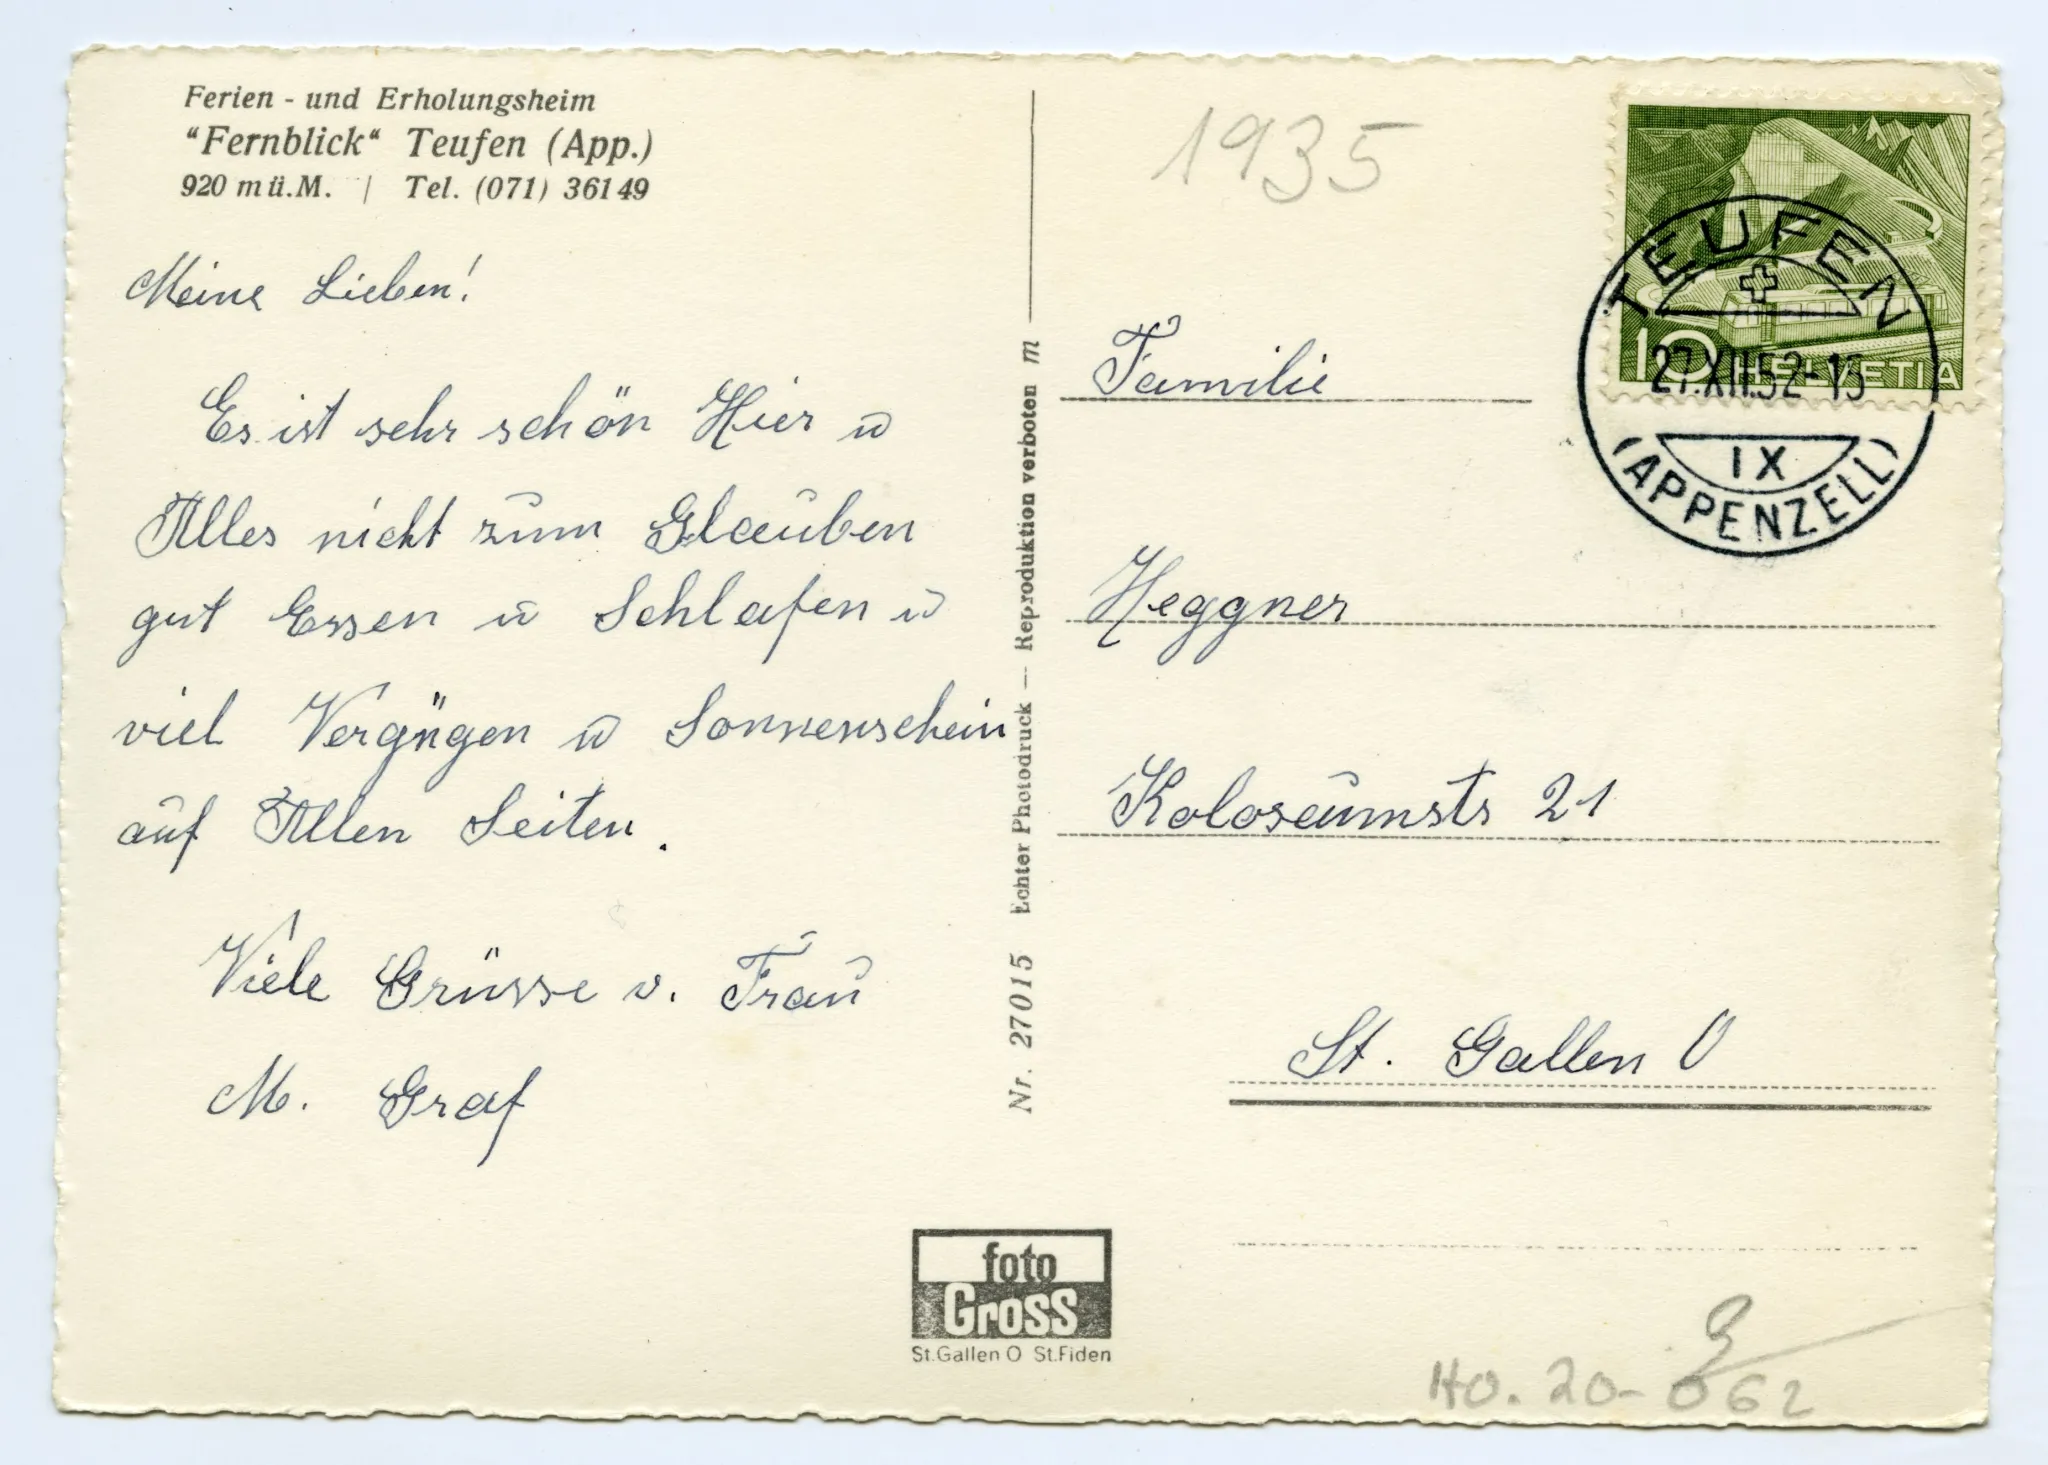 Ferien - und Erholungsheim
"Fernblick" Teufen (App.)
920 mü.M. | Tel. (071) 36149
Meine Lieben!
Es ist sehr schön Hier u
Alles nicht zum Glauben
gut Essen u Schlafen u
viel Vergügen u Sonnenschein
auf Allen Seiten.
Viele Grüsse v. Frau
M. Graf
Nr. 27015 Echter Photodruck — Reproduktion verboten m
1935
HELVETIA
10
TEUFEN
27.XII.52-15
IX
(APPENZELL)
Familie
Heggner
Koloseumsts 21
St. Gallen O
foto
Gross
St.Gallen O St.Fiden
HO. 20-062